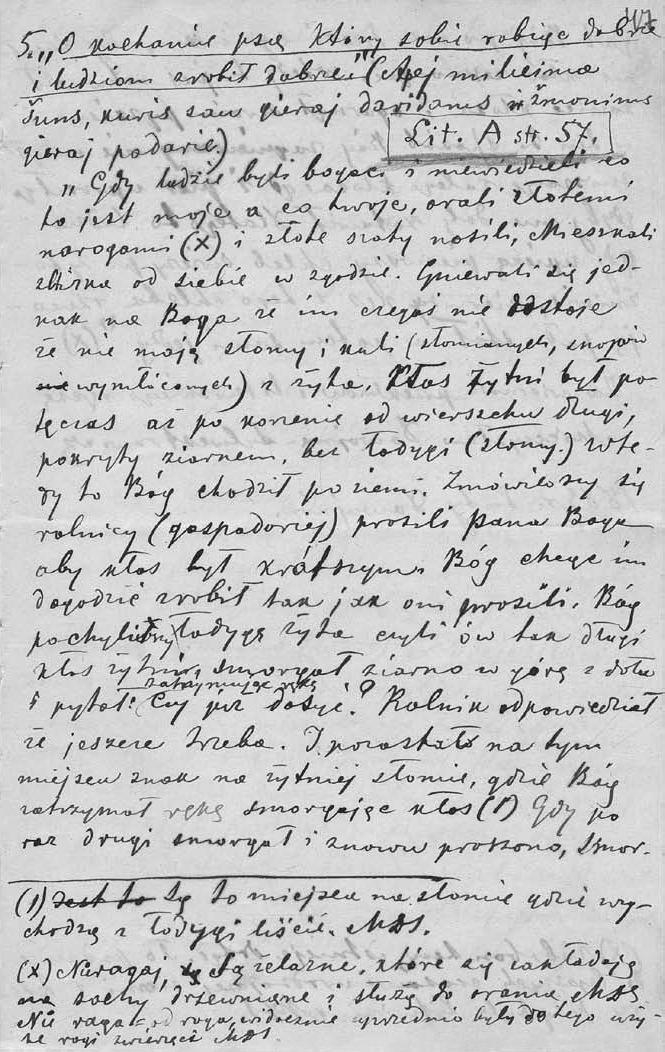 117
5. „O kochanie psę który sobie robiąc dobrze
i ludziom zrobił dobrze." (Apej milieima
šuns, kuris sau gieraj daridams ir žmonims
gieraj padarie.)
Lit. A str. 57.
„Gdy ludzie byli bogaci i niewiedzieli co
to jest moje a co twoje, orali złotemi
narogami (X) i złote szaty nosili, Mieszkali
zbizka od siebie w zgodzie. Gniewali się jed-
nak na Boga że im czegoś nie dostaje
że nie mają słomy i kuli (słomianych, snopów
wymłóconych) z żyta. Kłos żytni był po-
tęczas aż po korzenie od wierszchu długi,
pokryty ziarnem, bez łodygi (słomy.) wte-
dy to Bóg chodził po ziemi. Zmówiwszy się
rolnicy (gaspadoriej) prosili Pana Boga
aby kłos był krótszym. Bóg chcąc im
dogodzić zrobił tak jak oni prosili. Bóg
pochylił łodygę żyta czyli ów tak długi
kłos żytni, smorgał ziarno w górę z dołu
zatrzymując rękę
i pytał: Czy już dosyć? Rolnik odpowiedział
że jeszcze trzeba. I pozostał na tym
miejscu znak na żytniej słomie, gdzie Bóg
zatrzymał rękę smorgając kłos (1) Gdy po
raz drugi smorgał i znowu proszono, smor-
(1) Jest to Są to miejsca na słomie gdzie wy-
chodzą z łodygi liście. MDS.
(X) Neragaj, są żelazne, które się zakładają
na sochy drzewniane i służą do orania MDS
Ne raga - od roga, widocznie uprzednio były do tego uży-
te rogi zwierzęce MDS.